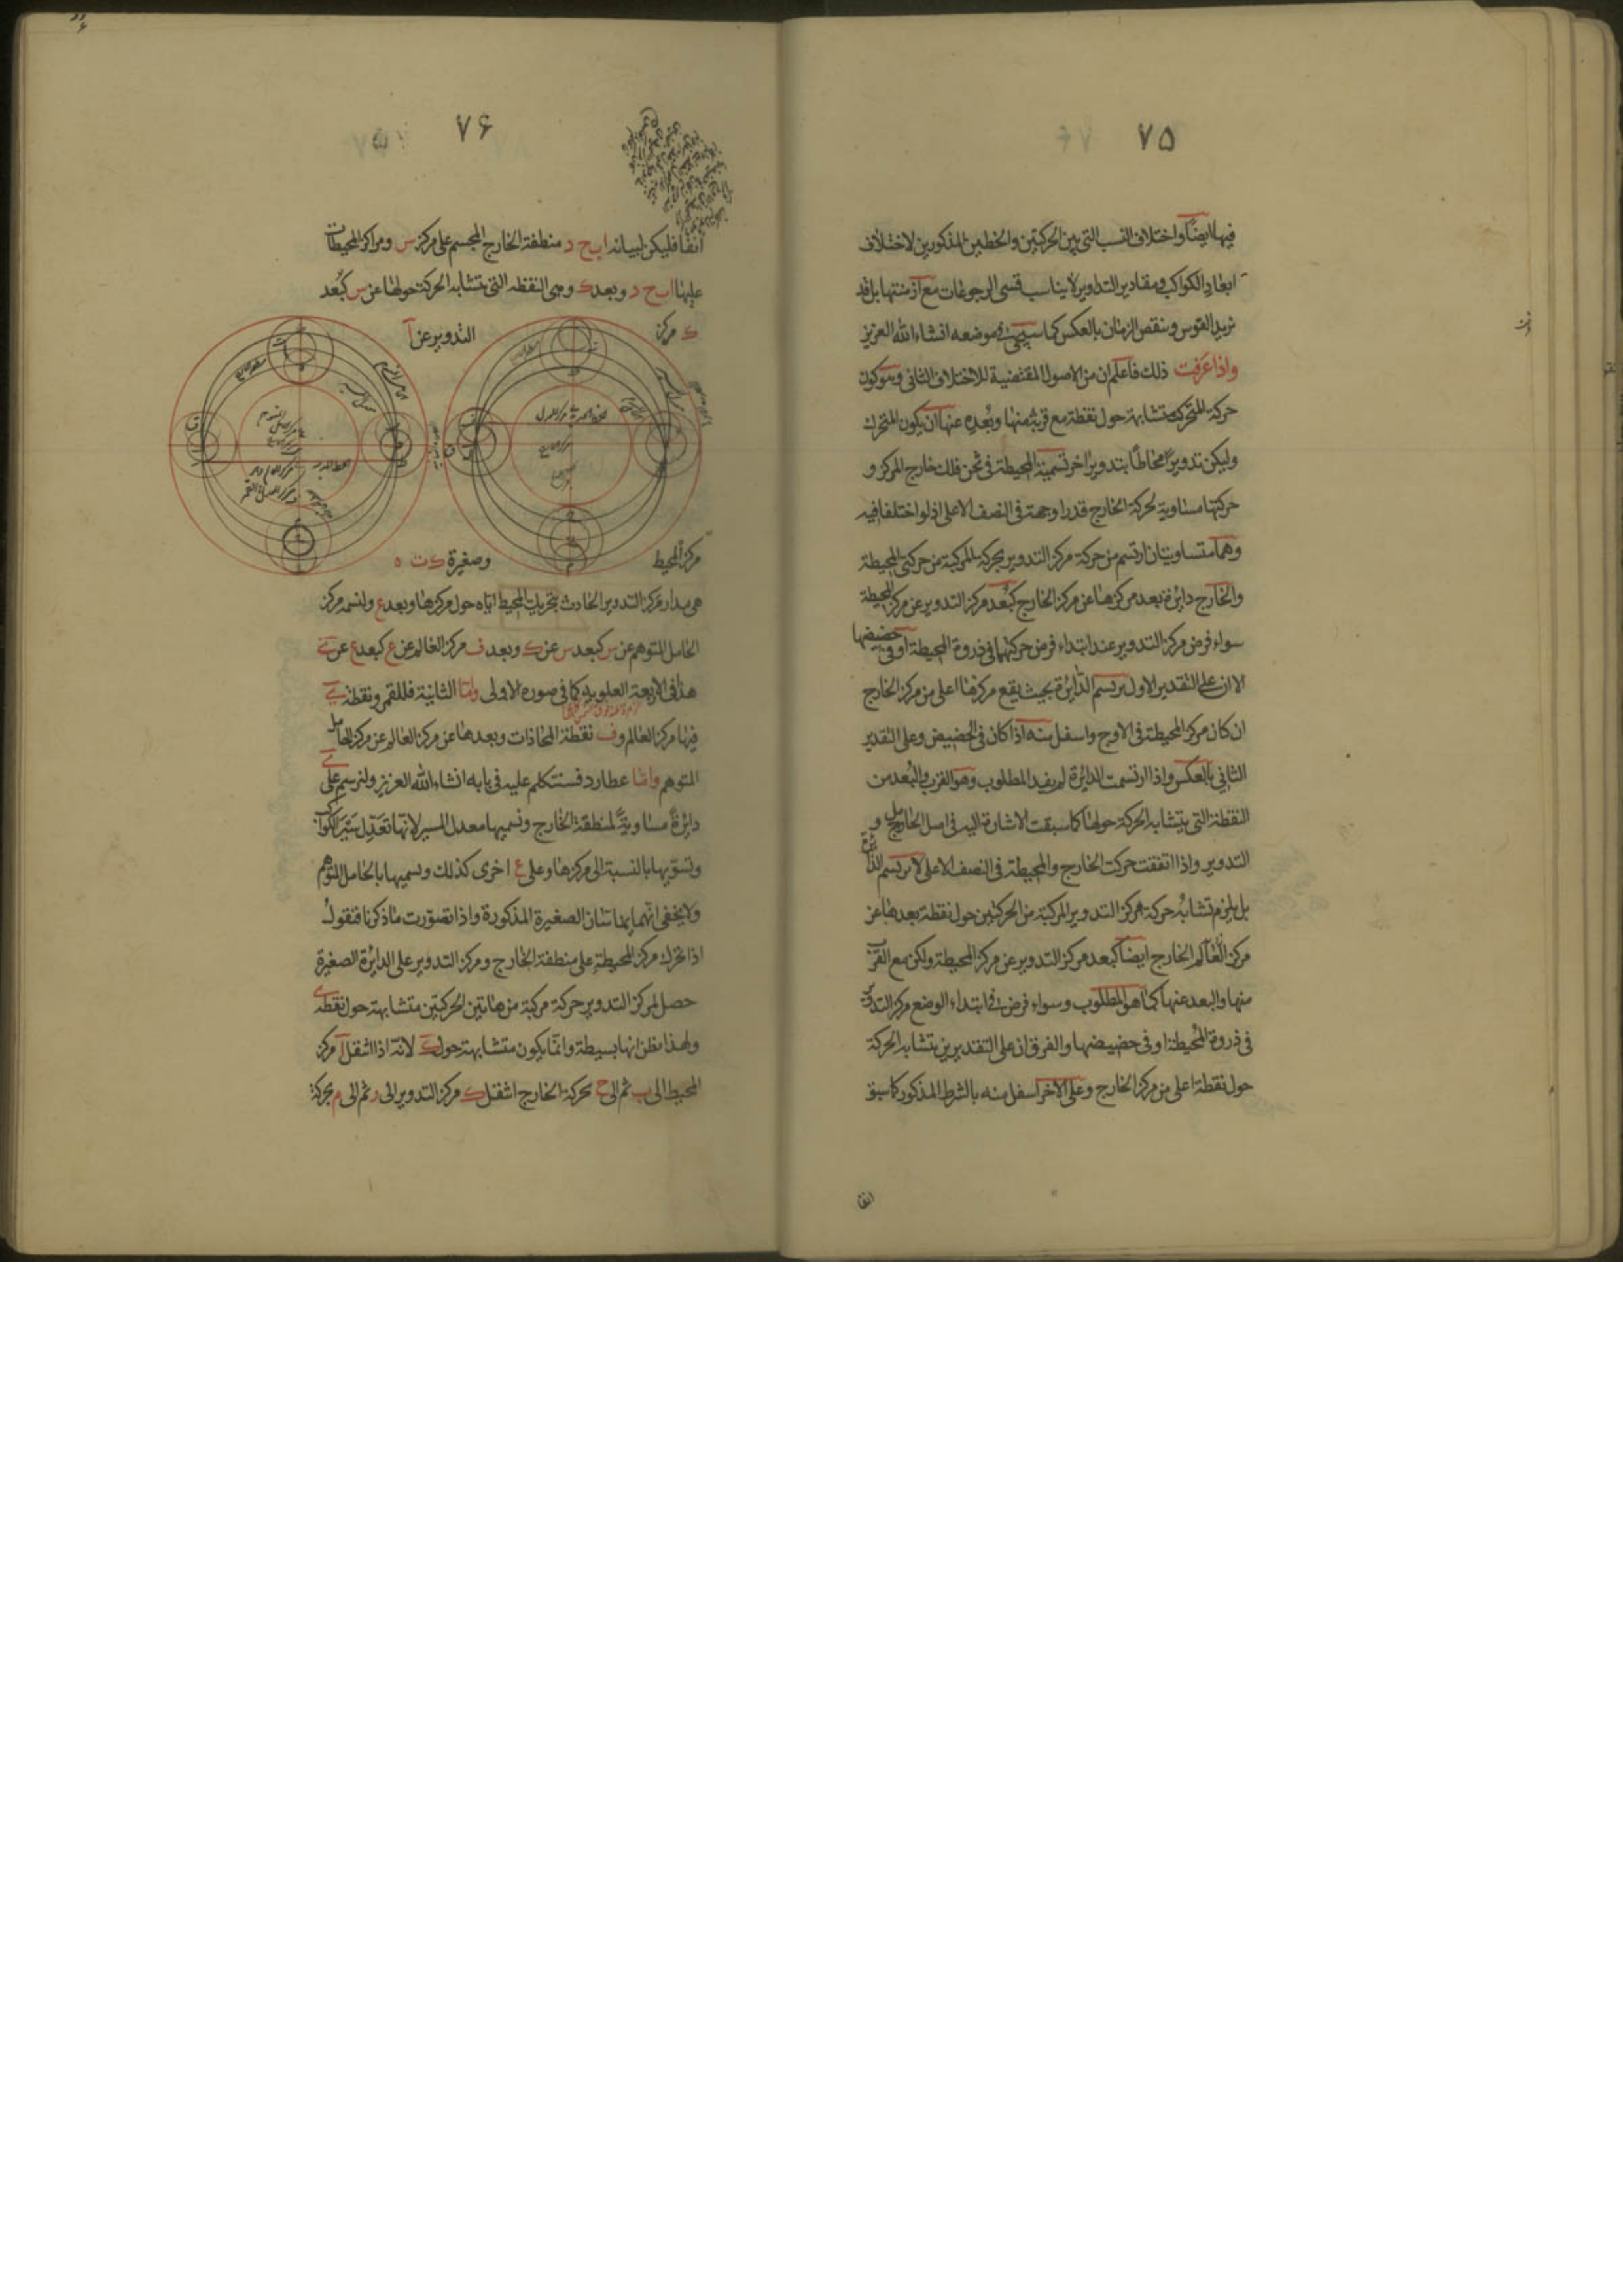 ٧۵
فيها ايضًا واختلاف النسب التى بين الحركتين والخطين المذكورين لاختلاف
ابعاد الكواكب ومقادير التداوير لا يناسب قسى الرجوعات مع ازمنتها بل قد
تزيد القوس وينقص الزمان بالعكس كما سيجئ فى موضعه انشاء الله العزيز
واذا عرفت ذلك فاعلم ان من الاصول المقتضية للاختلاف الثانى وهو كون
حركة المتحرك متشابهة حول نقطة مع قربه منها وبُعده عنها ان يكون المتحرك
وليكن تدويرًا محاطًا بتدوير اخر نسميه المحيطة فى ثخن فلك خارج المركز و
حركتها مساوية لحركة الخارج قدرا وجهة فى النصف الاعلى اذ لو اختلفا فيه
وهما متساويتان ارتسم من حركة مركز التدوير بحركة المركبة من حركتى المحيطة
والخارج دائرة بعد مركزها عن مركز الخارج كبُعد مركز التدوير عن مركز المحيطة
سواء فرض مركز التدوير عند ابتداء فرض حركتهما فى ذروة المحيطة او فى حضيضها
الا ان على التقدير الاول يرتسم الدائرة بحيث يقع مركزها اعلى من مركز الخارج
ان كان مركز المحيطة فى الاوج واسفل منه اذا كان فى الحضيض وعلى التقدير
الثانى بالعكس واذا ارتسمت الدائرة لم يفيد المطلوب وهو القرب والبُعد من
النقطة التى يتشابه الحركة حولها كما سبقت الاشارة اليه فى اصل الخارج و
التدوير واذا اتفقت حركت الخارج والمحيطة فى النصف الاعلى لا يرتسم الدائرة
بل يلزم تشابُه حركة مركز التدوير المركبة من الحركتين حول نقطة بعدها عن
مركز الخارج ايضًا كبعد مركز التدوير عن مركز المحيطة ولكن مع القرب
منها والبعد عنها كما هو المطلوب وسواء فرض فى ابتداء الوضع مركز التدوير
فى ذروة المحيطة او فى حضيضها والفرق ان على التقديرين يتشابه الحركة
حول نقطة اعلى من مركز الخارج وعلى الاخر اسفل منه بالشرط المذكور كما سبق
انفا
٧۶
انفا فليكن لبيانه ا ب ح د منطقة الخارج المجسم على مركز س ومراكز المحيطات
عليها ا ب ح د وبعد ك وهى النقطه التى تتشابه الحركة حولها عن س كبُعد
ك مركز التدوير عن آ
مركز المحيط وصغيرة ك ت ه
هى مدار مركز التدوير الحادث بتحريك المحيط اياه حول مركزها وبعد ع ولنسمه مركز
الحامل المتوهم عن س كبعد س عن ك وبعد ف مركز العالم عن ع كبعد ع عن ى
هذا فى الاربعة العلوية كما فى صورة الاولى وامّا الثانية فللقمر ونقطة ى
فيها مركز العالم وف نقطة المحاذات وبعدها عن مركز العالم عن مركز الحامل
المتوهم وامّا عطارد فسنتكلم عليه فى بابه انشاء الله العزيز ولنرسم على ى
دائرةً مساويةً لمنطقة الخارج ونسميها معدل المسير لانها تعدّل سَيْر الكواكب
وتسوّيها بالنسبة الى مركزها وعلى ع اخرى كذلك ونسميها بالحامل المتوهم
ولا يخفى انهما يماسّان الصغيرة المذكورة واذا تصوّرت ما ذكرنا فنقول
اذا تحرك مركز المحيطة على منطقة الخارج ومركز التدوير على الدائرة الصغيرة
حصل لمركز التدوير حركة مركبة من هاتين الحركتين متشابهة حول نقطة ى
ولهذا يظن انها بسيطة وانما يكون متشابهة حول ك لانه اذا انتقل آ مركز
المحيط الى ب ثم الى ح بحركة الخارج انتقل ك مركز التدوير الى ر ثم الى م بحركة